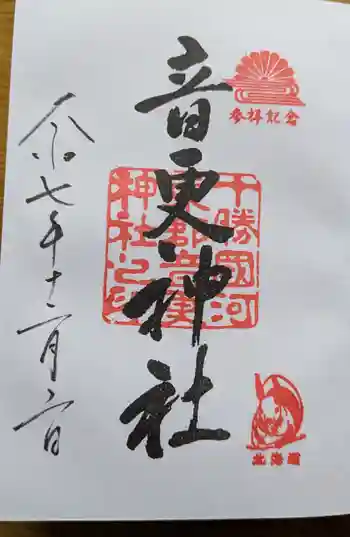 參拜記念
音更神社
十勝國河
東郡音更
神社之印
北海道
令和七年十二月日